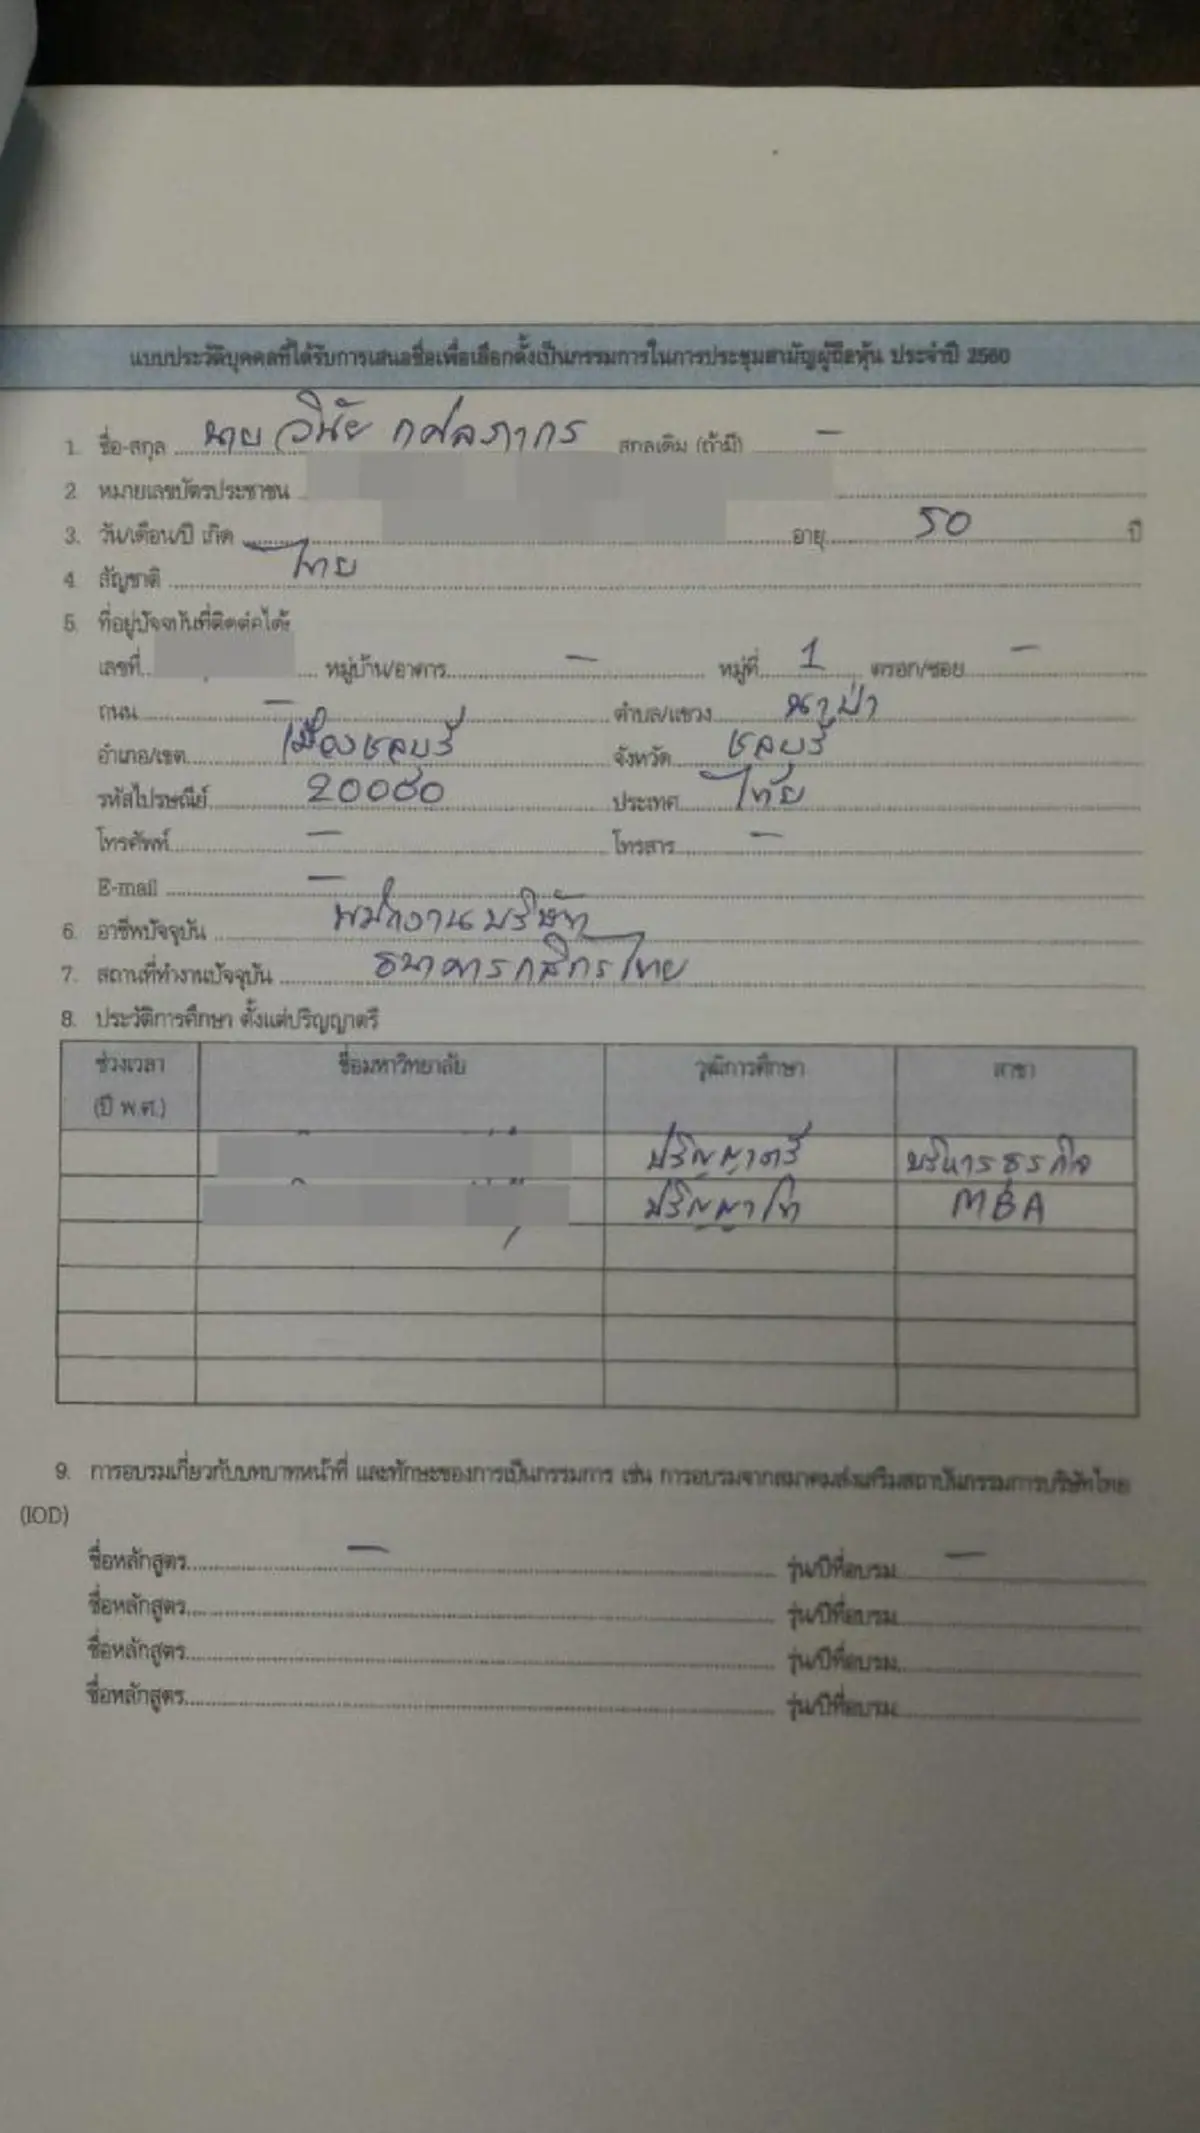 แบบประวัติบุคคลที่ได้รับการเสนอชื่อเพื่อเลือกตั้งเป็นกรรมการในการประชุมสามัญผู้ถือหุ้น ประจำปี 2560
1. ชื่อ-สกุล นาย วินัย กศลภากร สกุลเดิม (ถ้ามี) -
2. หมายเลขบัตรประชาชน
3. วัน/เดือน/ปี เกิด อายุ 50 ปี
4. สัญชาติ ไทย
5. ที่อยู่ปัจจุบันที่ติดต่อได้
เลขที่ หมู่บ้าน/อาคาร - หมู่ที่ 1 ตรอก/ซอย -
ถนน - ตำบล/แขวง นาป่า
อำเภอ/เขต เมืองชลบุรี จังหวัด ชลบุรี
รหัสไปรษณีย์ 20000 ประเทศ ไทย
โทรศัพท์ - โทรสาร -
E-mail -
6. อาชีพปัจจุบัน พนักงานบริษัท
7. สถานที่ทำงานปัจจุบัน ธนาคารกสิกรไทย
8. ประวัติการศึกษา ตั้งแต่ปริญญาตรี
ช่วงเวลา (ปี พ.ศ.) ชื่อมหาวิทยาลัย วุฒิการศึกษา สาขา
ปริญญาตรี บริหารธุรกิจ
ปริญญาโท MBA
9. การอบรมเกี่ยวกับบทบาทหน้าที่ และทักษะของการเป็นกรรมการ เช่น การอบรมจากสมาคมส่งเสริมสถาบันกรรมการบริษัทไทย
(IOD)
ชื่อหลักสูตร - รุ่น/ปีที่อบรม -
ชื่อหลักสูตร รุ่น/ปีที่อบรม
ชื่อหลักสูตร รุ่น/ปีที่อบรม
ชื่อหลักสูตร รุ่น/ปีที่อบรม